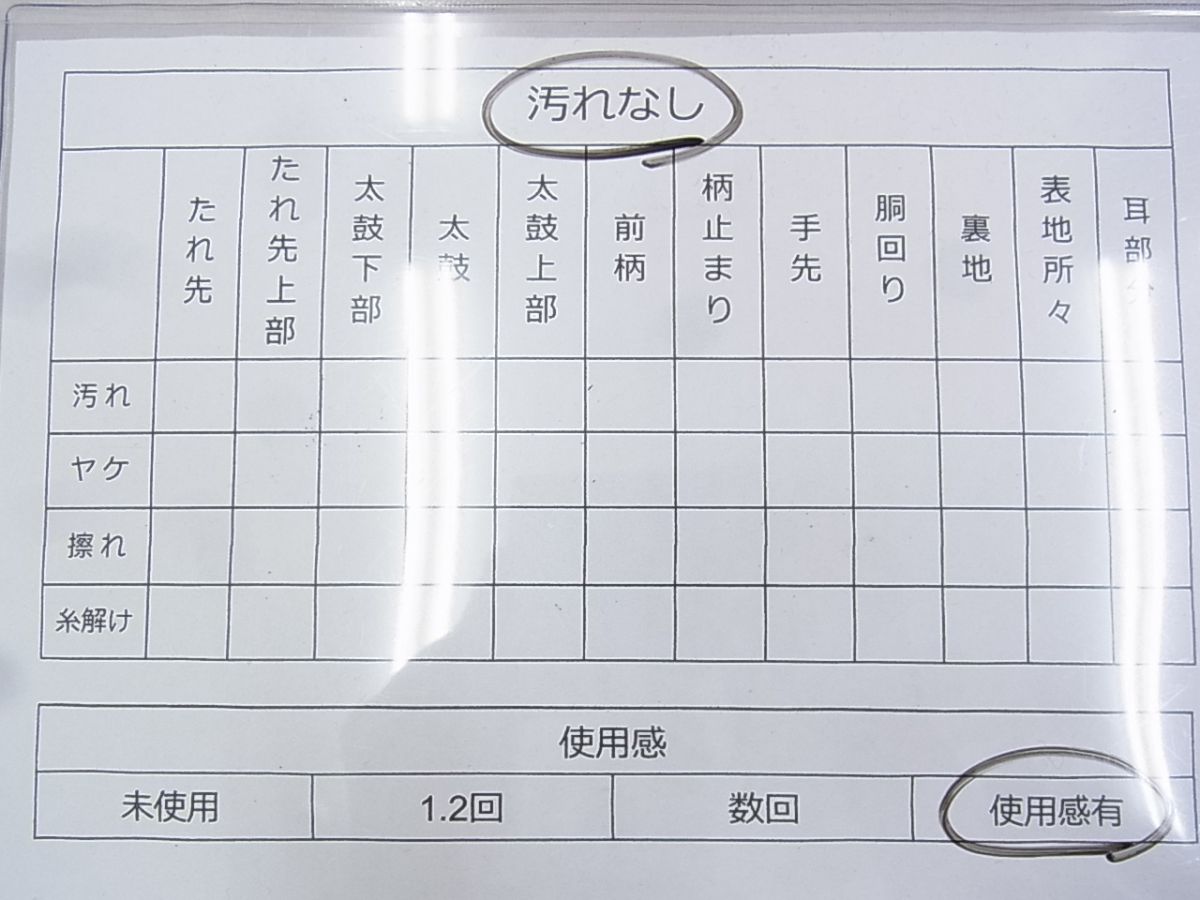 汚れなし
たれ先
たれ先上部
太鼓下部
太鼓
太鼓上部
前柄
柄止まり
手先
胴回り
裏地
表地所々
耳部分
汚れ
ヤケ
擦れ
糸解け
使用感
未使用
1.2回
数回
使用感有